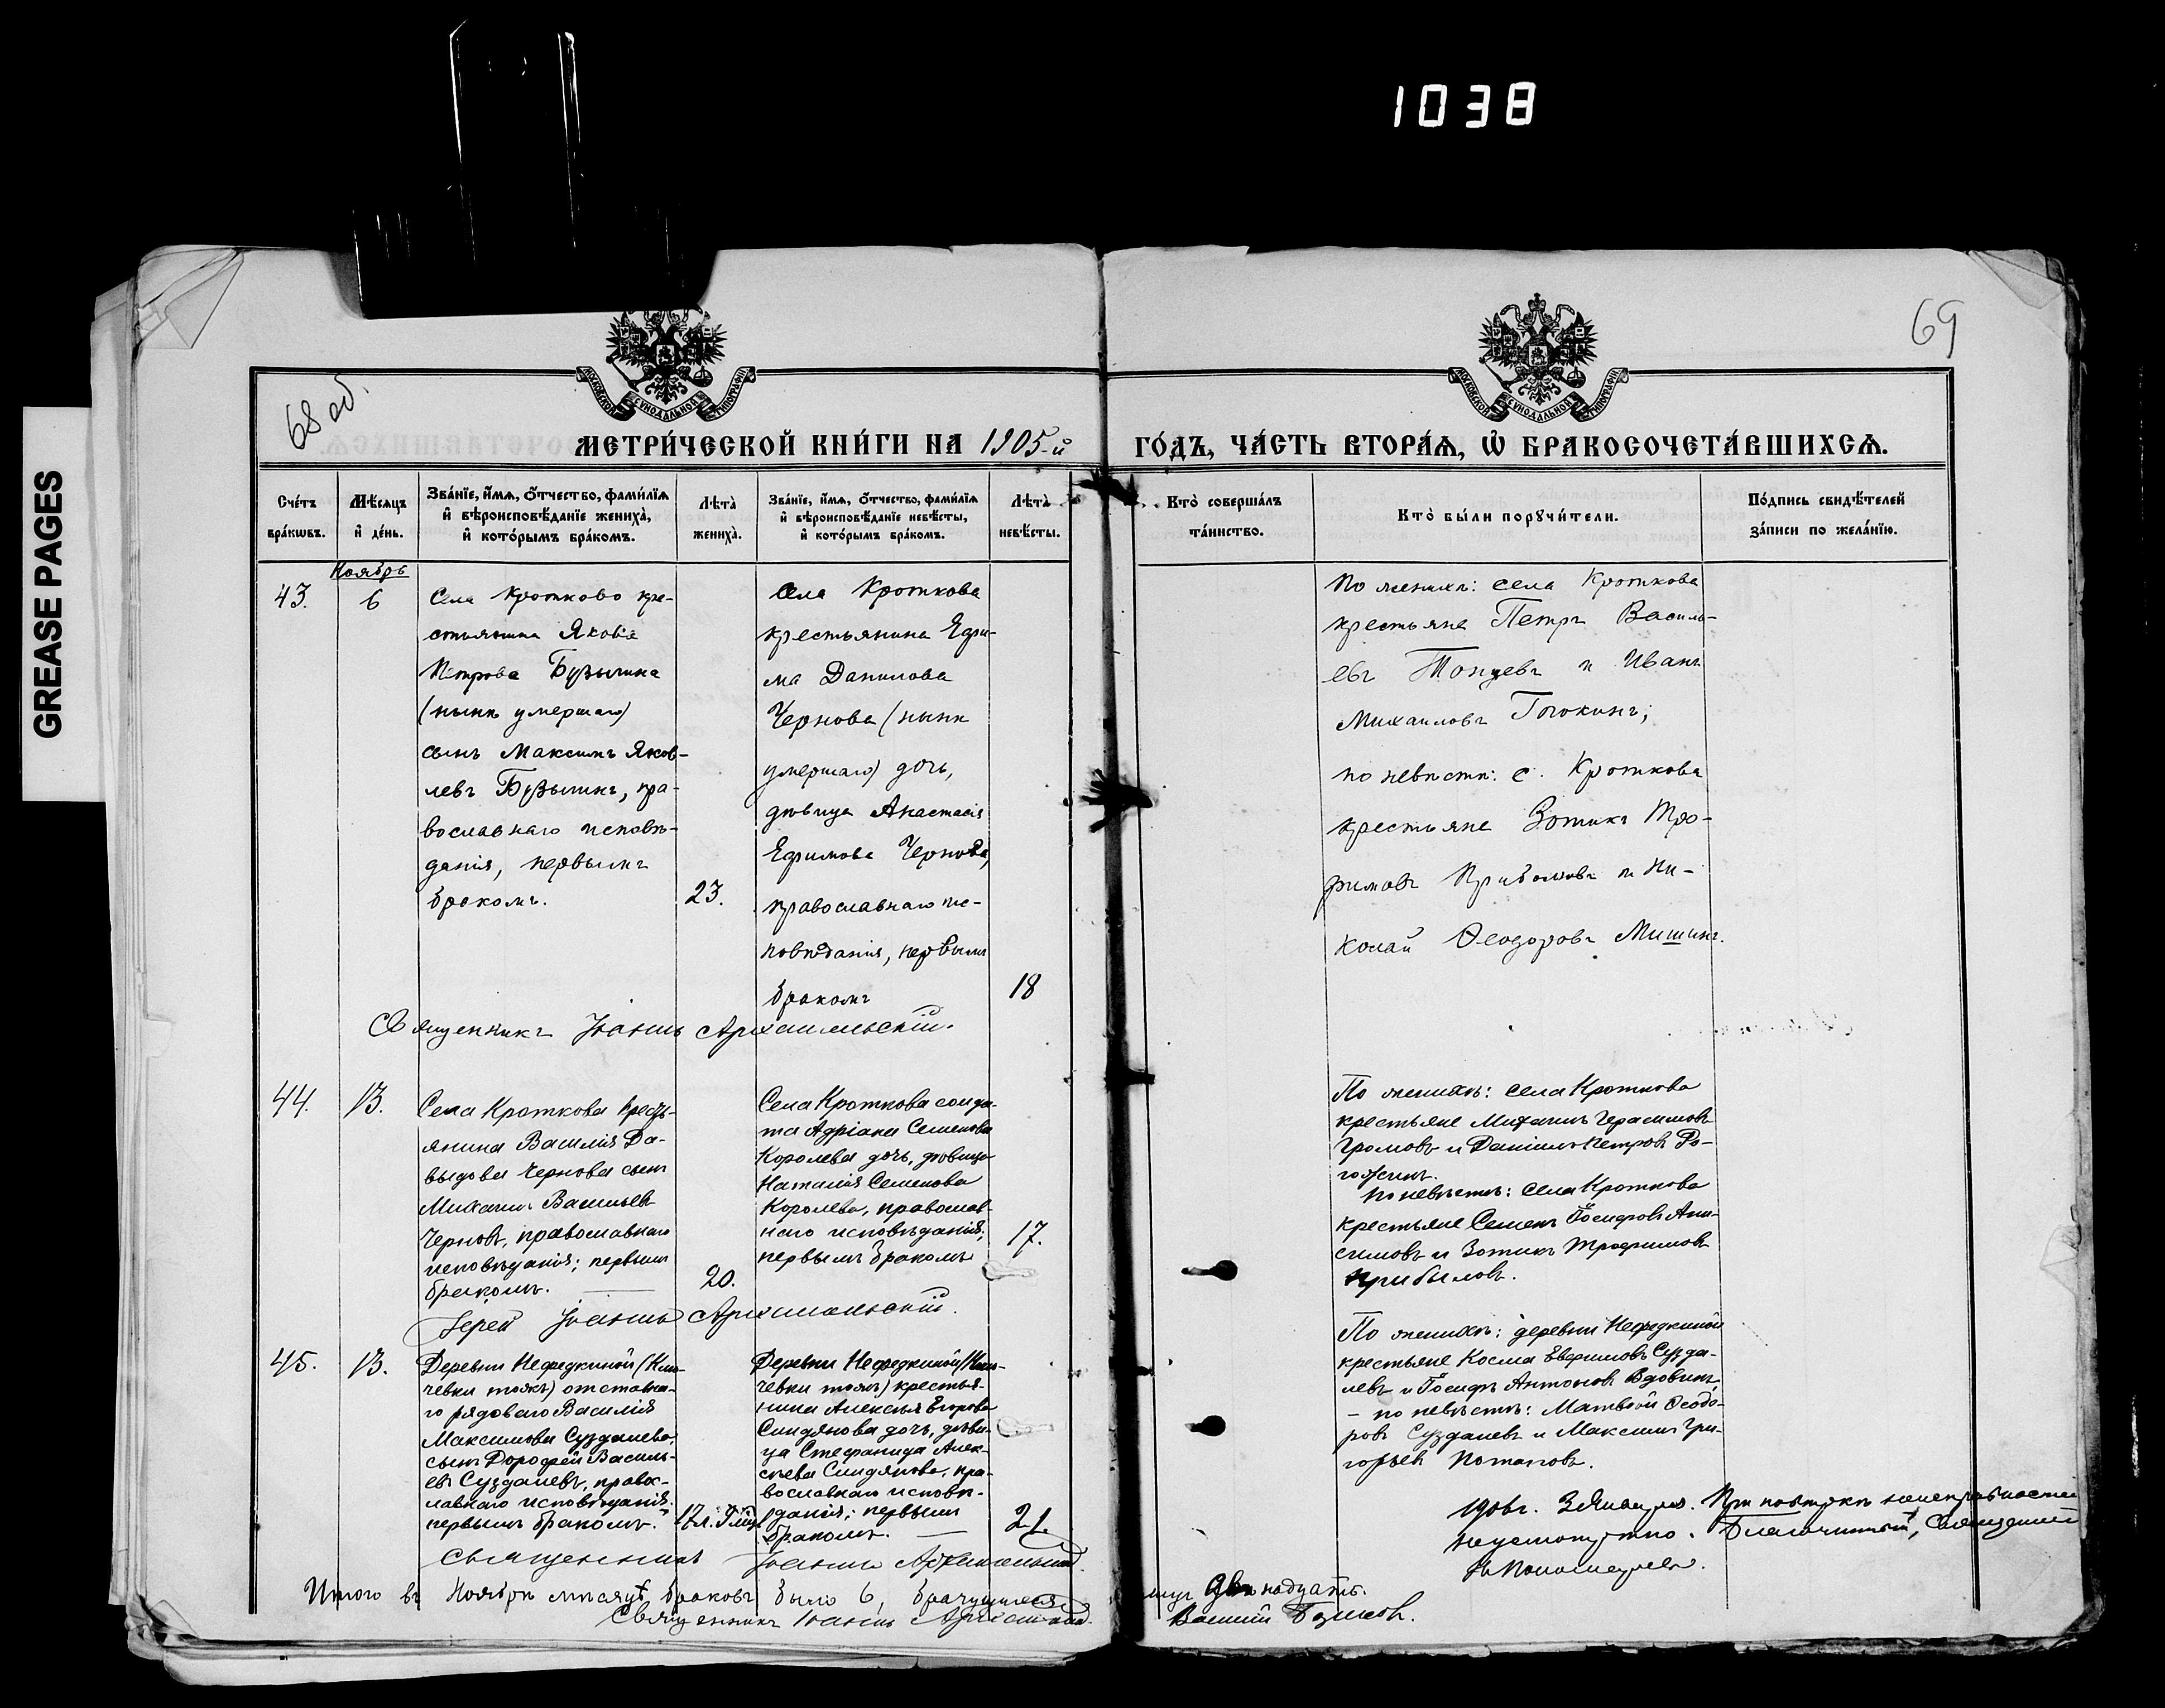 1038
GREASE PAGES
68 об.
69
МОСКОВСКОЙ СИНОДАЛЬНОЙ ТИПОГРАФІИ
МОСКОВСКОЙ СИНОДАЛЬНОЙ ТИПОГРАФІИ
МЕТРИ́ЧЕСКОЙ КНИ́ГИ НА 1905-й
ГО́ДЪ, ЧА́СТЬ ВТОРА́Ѧ, Ѡ҆ БРАКОСОЧЕТА́ВШИХСѦ.
Сче́тъ бра́кѡвъ.
Мѣ́сяцъ и҆ де́нь.
Зва́нїе, и҆́мѧ, ѻ҆́тчество, фами́лїѧ
и҆ вѣроисповѣ́данїе жениха̀,
и҆ кото́рымъ бра́комъ.
Лѣта̀ жениха̀.
Зва́нїе, и҆́мѧ, ѻ҆́тчество, фами́лїѧ
и҆ вѣроисповѣ́данїе невѣ́сты,
и҆ кото́рымъ бра́комъ.
Лѣта̀ невѣ́сты.
Кто̀ соверша́лъ
та́инство.
Кто̀ бы́ли порꙋчи́тели.
По́дпись свидѣ́телей
за́писи по жела́нїю.
Ноябрь
43.
6
Села Кротково кре-
стьянина Якова
Петрова Бузычина
(нынѣ умершаго)
сынъ Максимъ Яков-
левъ Бузычинъ, пра-
вославнаго исповѣ-
данія, первымъ
бракомъ.
23.
Села Кроткова
крестьянина Ефи-
ма Данилова
Чернова (нынѣ
умершаго) дочь,
дѣвица Анастасія
Ефимова Чернова,
православнаго ис-
повѣданія, первымъ
бракомъ
18
По женихѣ: села Кроткова
крестьяне Петръ Василь-
евъ Топцевъ и Иванъ
Михаиловъ Гогокинъ;
по невѣстѣ: с. Кроткова
крестьяне Зотикъ Тро-
фимовъ Прибыловъ и Ни-
колай Ѳеодоровъ Мишинъ.
Священникъ Іоаннъ Архангельскій.
44.
13.
Села Кроткова кресть-
янина Василія Да-
выдова Чернова сынъ
Михаилъ Васильевъ
Черновъ, православнаго
исповѣданія; первымъ
бракомъ.
20.
Села Кроткова солда-
та Адріана Семенова
Королева дочь, дѣвица
Наталія Семенова
Королева, православ-
наго исповѣданія;
первымъ бракомъ
17.
По женихѣ: села Кроткова
крестьяне Михаилъ Герасимовъ
Громовъ и Даніилъ Петровъ Ро-
гожинъ.
По невѣстѣ: села Кроткова
крестьяне Семенъ Іосифовъ Ани-
симовъ и Зотикъ Трофимовъ
Прибыловъ.
Іерей Іоаннъ Архангельскій.
45.
13.
Деревни Нефедкиной (Клю-
чевки тожъ) отставна-
го рядоваго Василія
Максимова Суздалева,
сынъ Дорофей Василь-
евъ Суздалевъ, правос-
лавнаго исповѣданія.
первымъ бракомъ.
Деревни Нефедкиной (Клю-
чевки тожъ) крестья-
нина Алексѣя Егорова
Слидянова дочь, дѣви-
ца Стефанида Алек-
сѣева Слидянова, пра-
вославнаго исповѣ-
данія; первымъ
бракомъ.
21.
По женихѣ: деревни Нефедкиной
крестьяне Косма Евфимовъ Сузда-
левъ и Іосифъ Антоновъ Вдовинъ,
- по невѣстѣ: Матвѣй Ѳеодо-
ровъ Суздалевъ и Максимъ Гри-
горьевъ Потаповъ.
Священникъ Іоаннъ Архангельскій
1906г. 3 Января. При повѣркѣ неисправностей
Благочинный, Священникъ
Итого въ Ноябрѣ мѣсяцѣ браковъ было 6, брачущихся лицъ двѣнадцать.
Священникъ Іоаннъ Архангельскій.